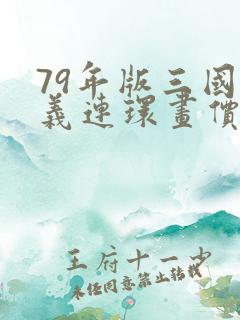 79年版三國
義連環畫價
王府十一少
未经同意禁止转载